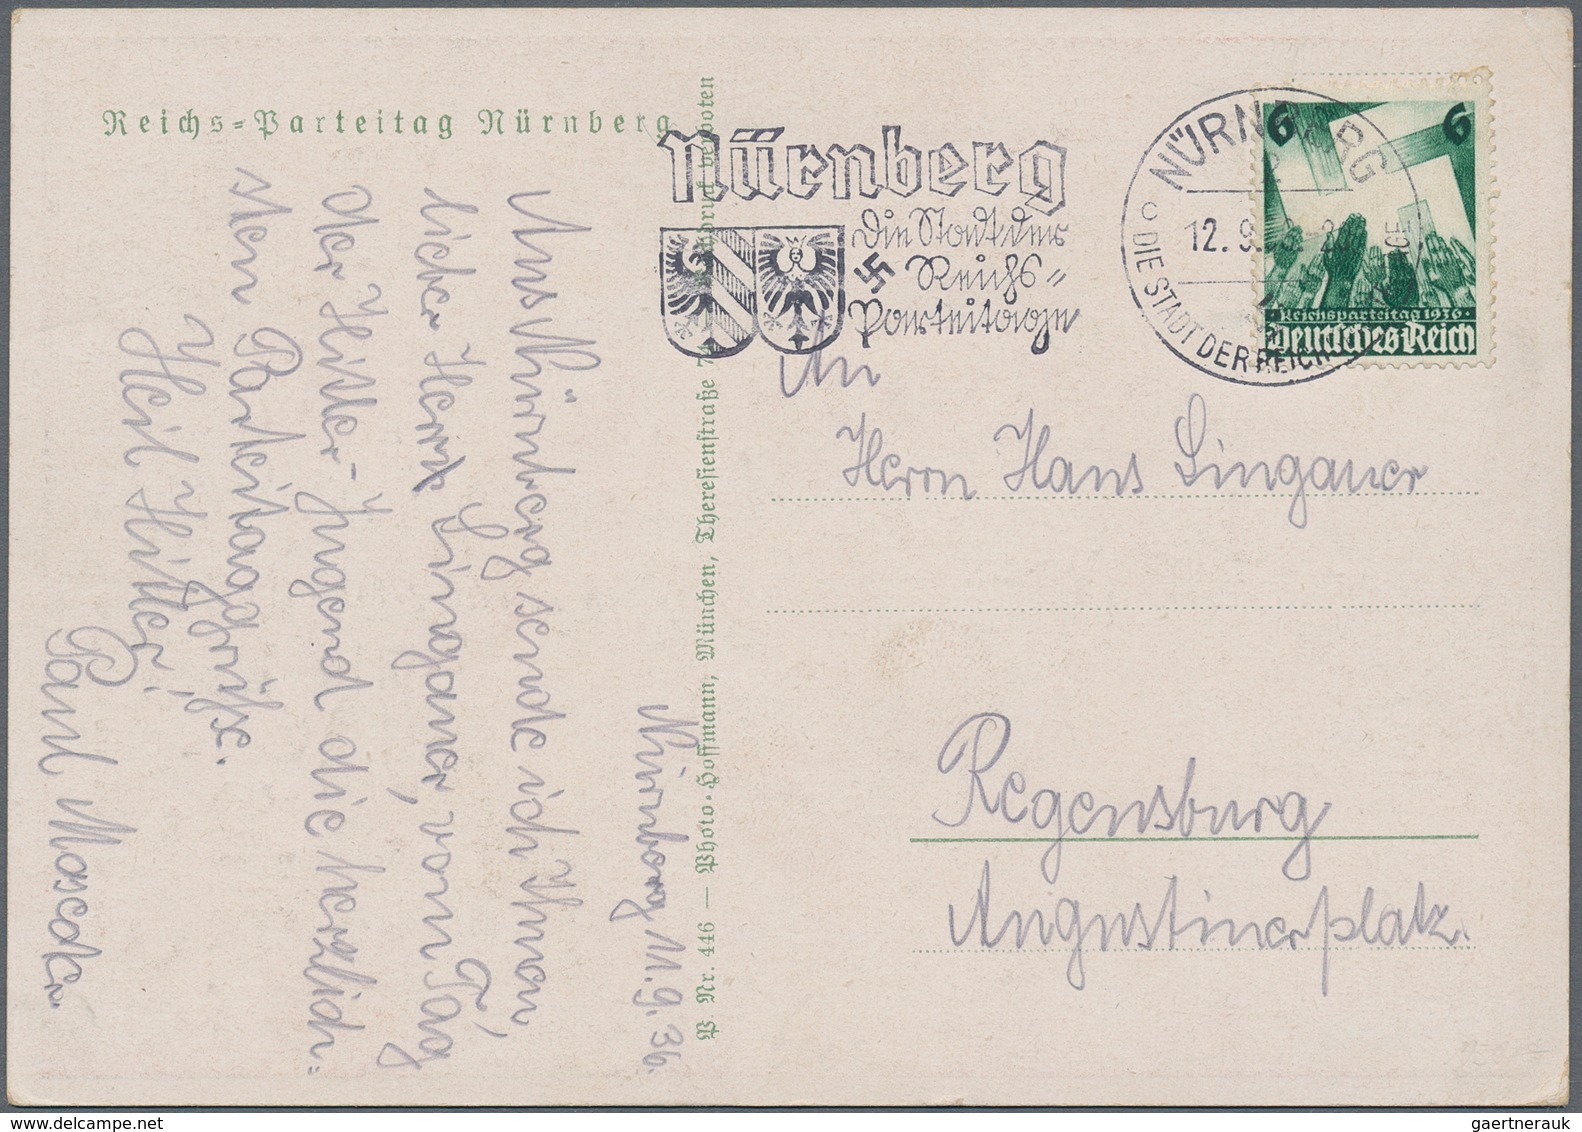 Reichs=Parteitag Nürnberg
Nürnberg 11.9.36.
Aus Nürnberg sende ich Ihnen,
lieber Herr Lingauer, vom Tag
der Hitler-Jugend die herzlich-
sten Parteitaggrüße.
Heil Hitler!
Paul Moseder.
P. Nr. 446 — Photo-Hoffmann, München, Theresienstraße 74 verboten
Nürnberg
Die Stadt der
Reichs=
Parteitage
NÜRNBERG
2
12. 9.
DIE STADT DER REICHSPARTEITAGE
6 6
Reichsparteitag 1936
Deutsches Reich
An
Herrn Hans Lingauer
Regensburg
Augustinerplatz.
gaertnerauk